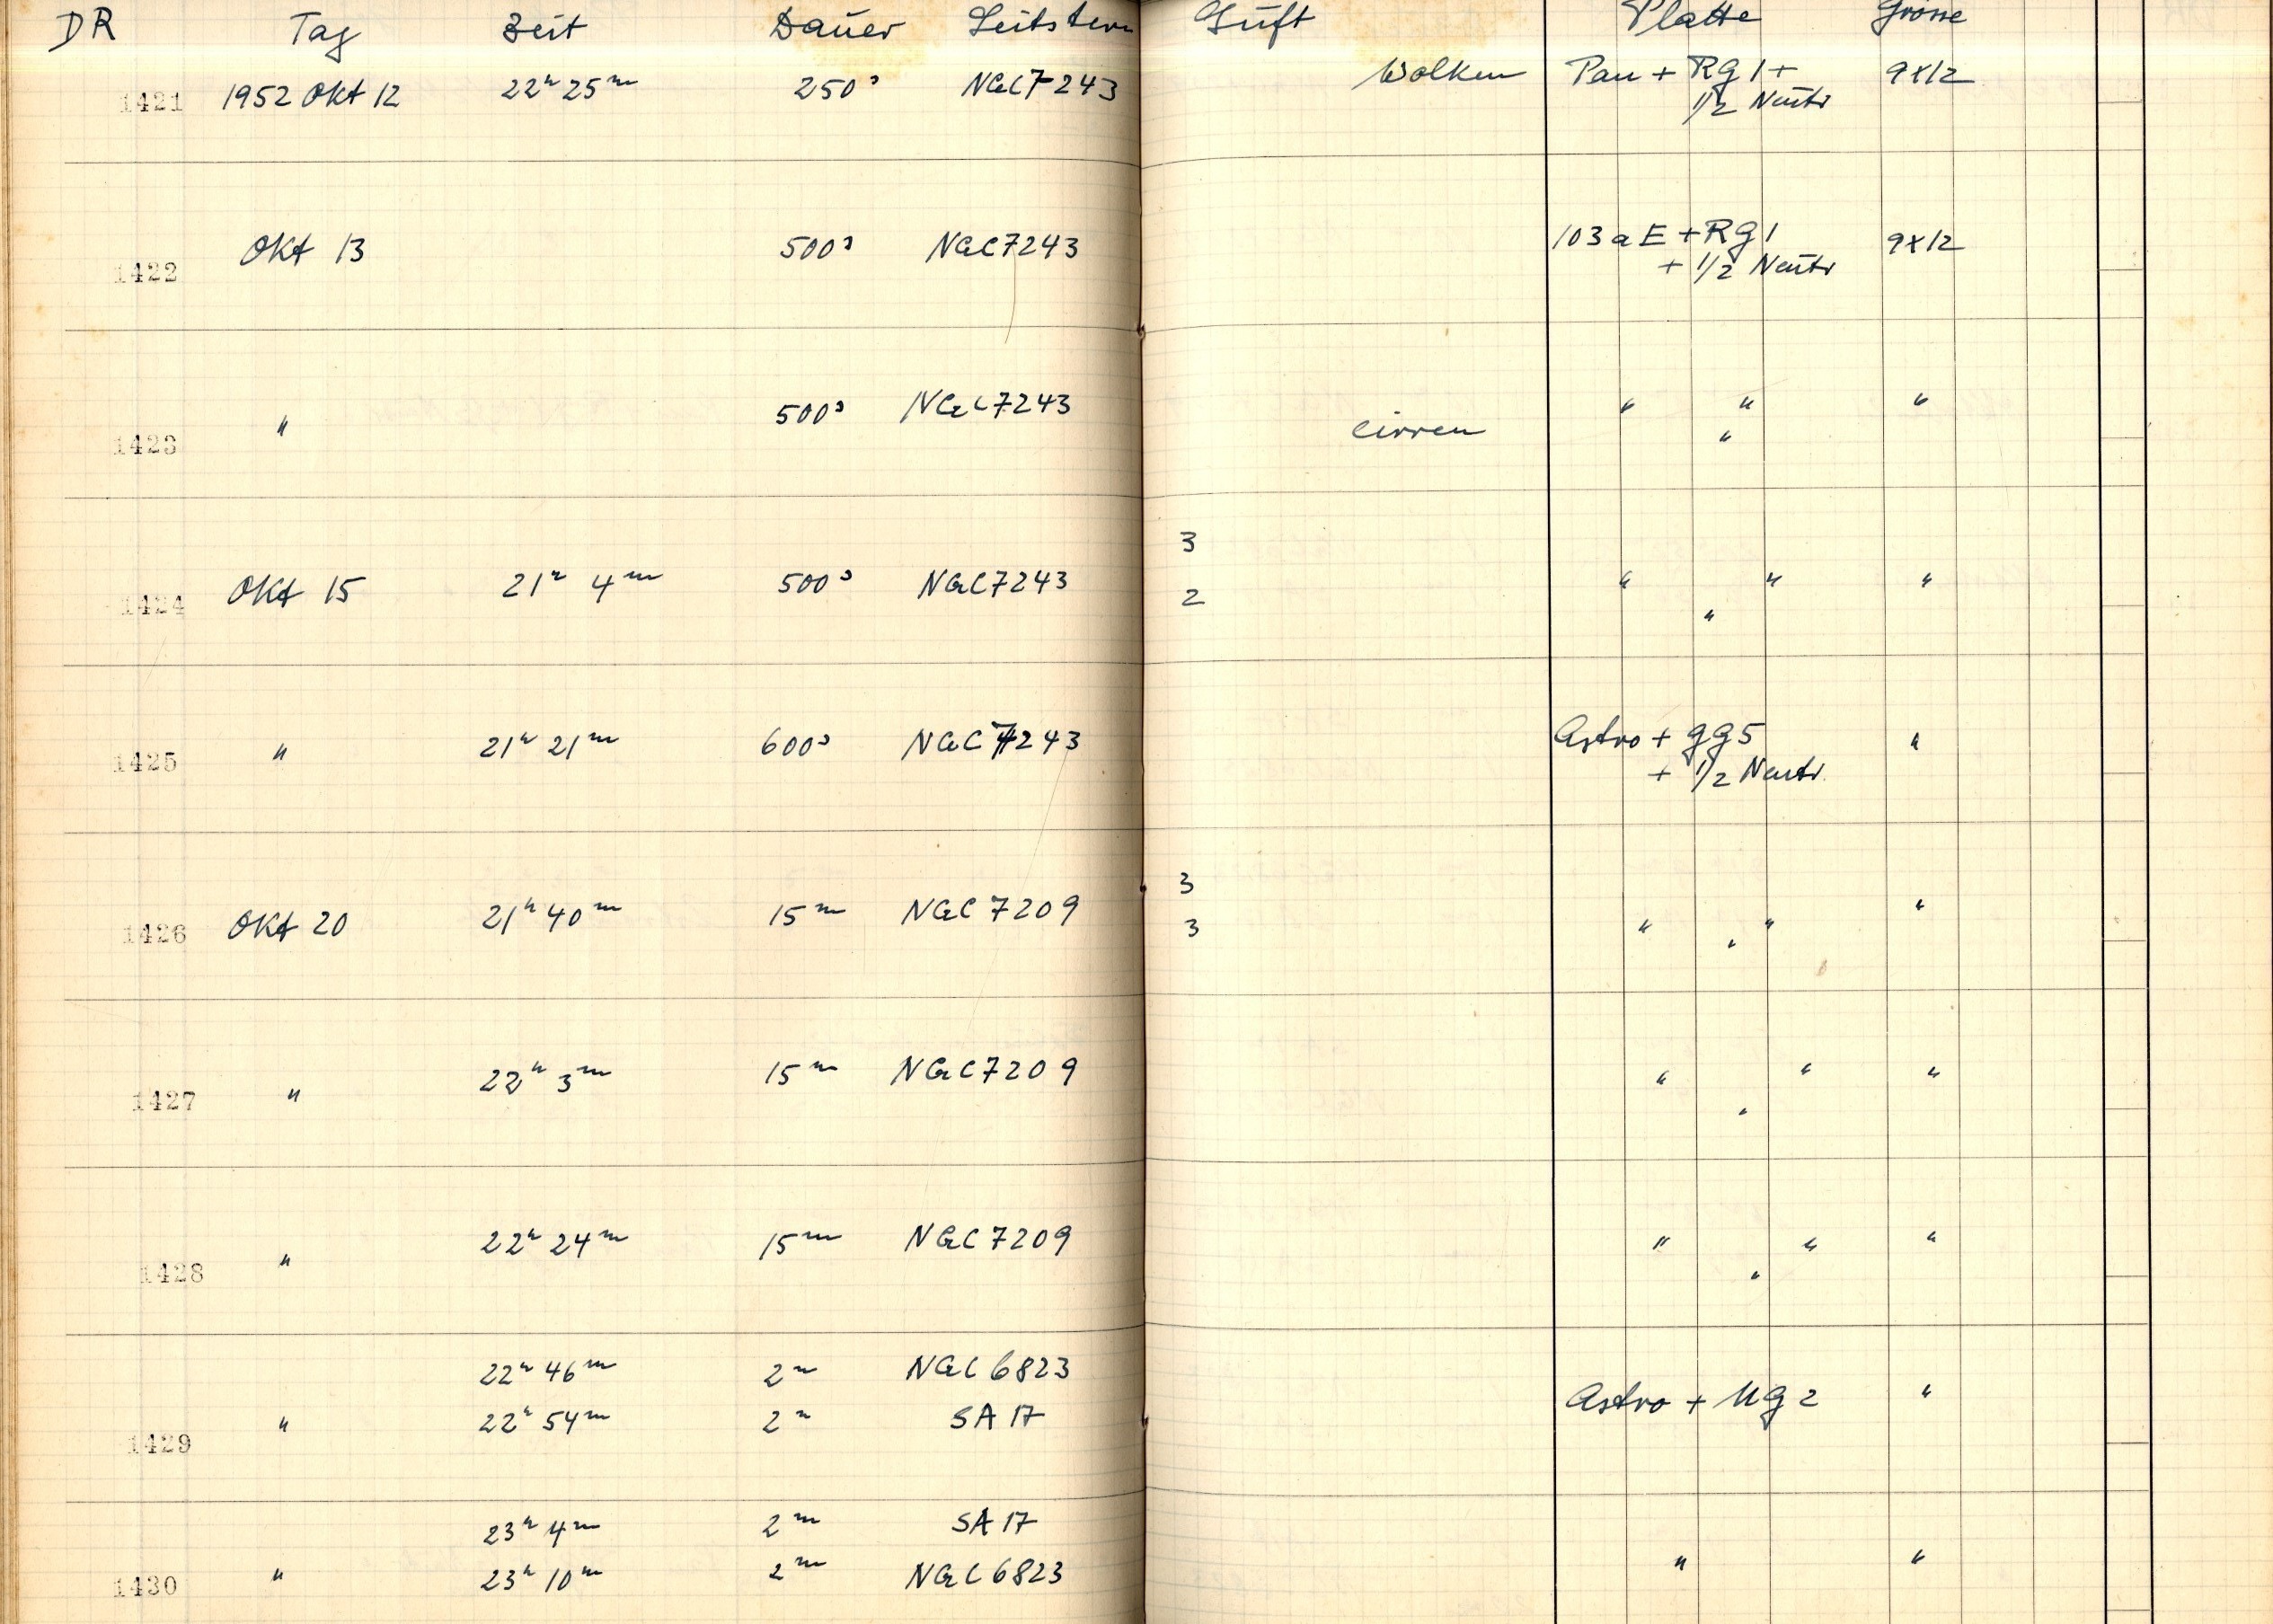 DR Tag Zeit Dauer Leitstern Luft Platte Grösse
1421 1952 Okt 12 22h 25m 250s NGC 7243 Wolken Pan + RG 1 + 9x12
1/2 Neutr
1422 Okt 13 500s NGC 7243 103 a E + RG 1 9x12
+ 1/2 Neutr
1423 " 500s NGC 7243 Cirren " " "
"
3
1424 Okt 15 21h 4m 500s NGC 7243 2 " " "
"
1425 " 21h 21m 600s NGC 7243 Astro + GG 5 "
+ 1/2 Neutr.
3
1426 Okt 20 21h 40m 15m NGC 7209 3 " " "
"
1427 " 22h 3m 15m NGC 7209 " " "
"
1428 " 22h 24m 15m NGC 7209 " " "
"
22h 46m 2m NGC 6823
1429 " 22h 54m 2m SA 17 Astro + UG 2 "
23h 4m 2m SA 17
1430 " 23h 10m 2m NGC 6823 " "